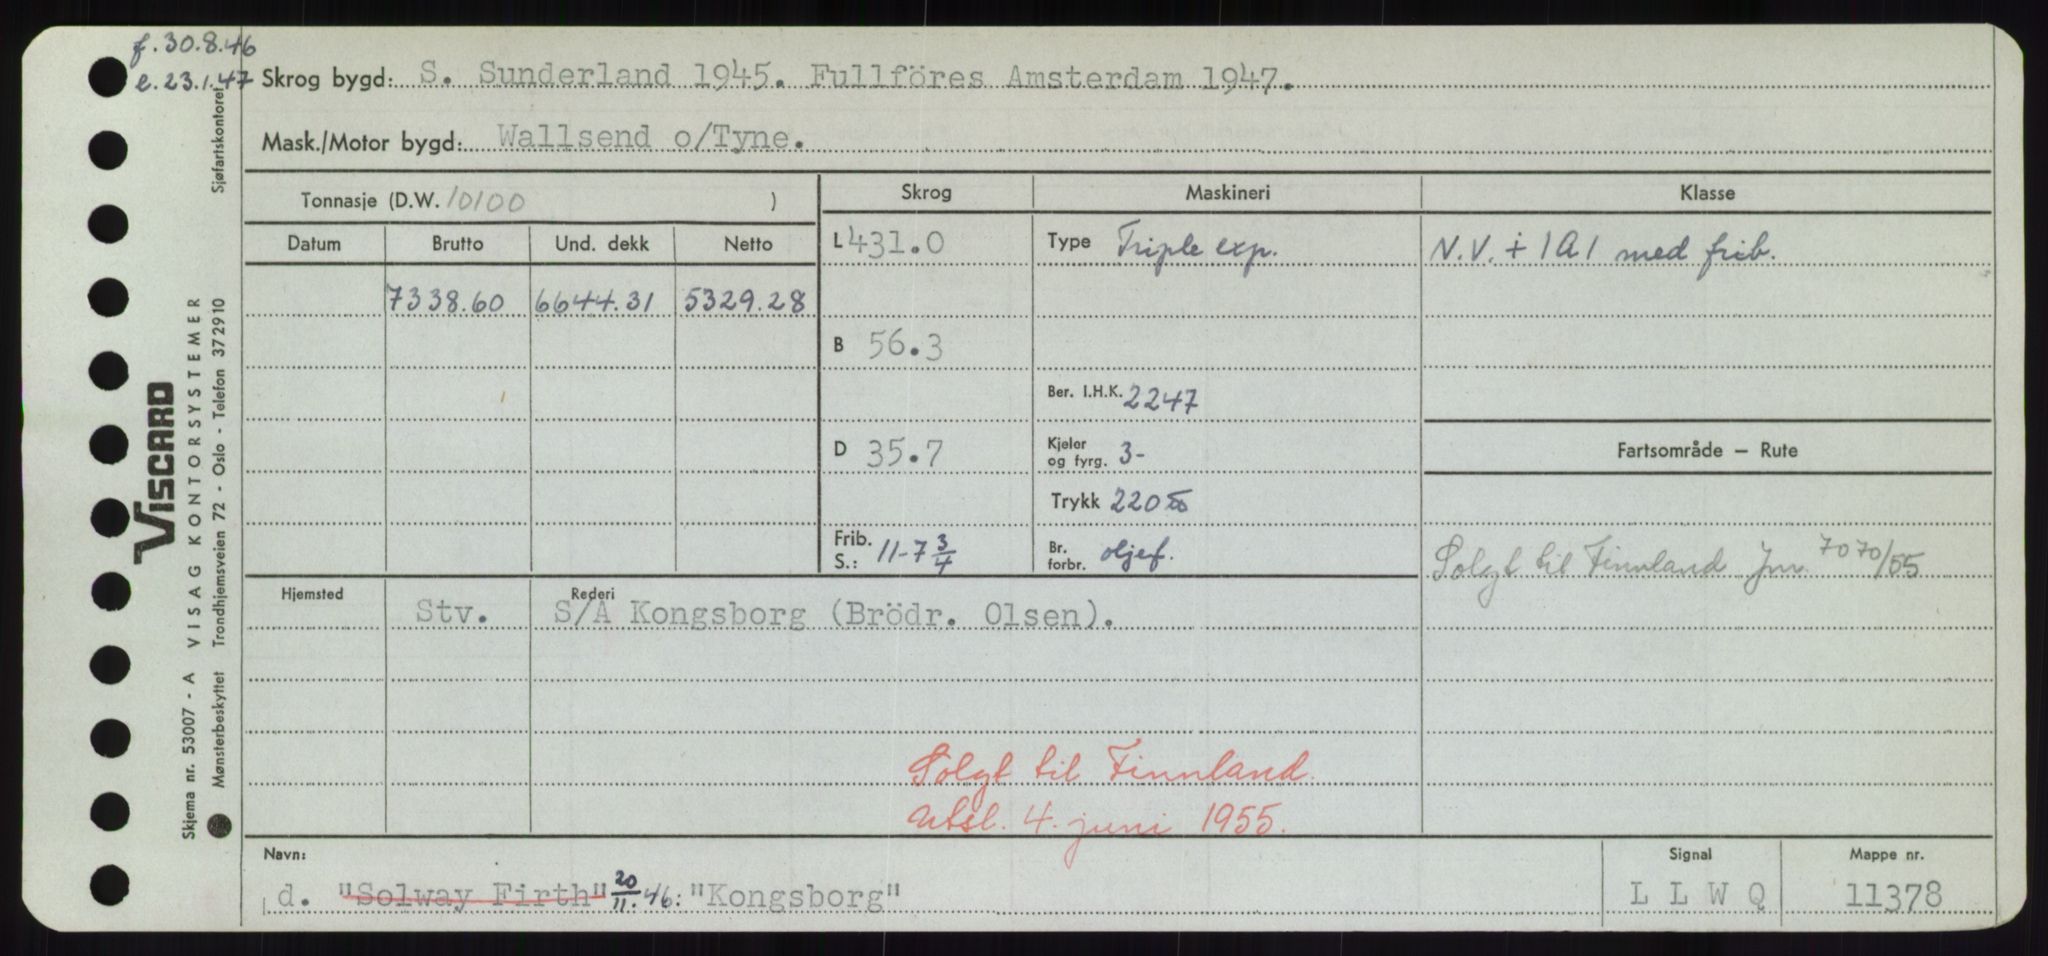 f. 30.8.46
e. 23.1.47
Skrog bygd: S. Sunderland 1945. Fullföres Amsterdam 1947.
Mask./Motor bygd: Wallsend o/Tyne.
Tonnasje (D.W. 10100 )
Datum Brutto Und. dekk Netto
7338.60 6644.31 5329.28
Skrog
L 431.0
B 56.3
D 35.7
Frib. S.: 11-7 3/4
Maskineri
Type Triple exp.
Ber. I.H.K. 2247
Kjeler og fyrg. 3-
Trykk 220
Br. forbr. oljef.
Klasse
N.V. + 1A1 med frib.
Fartsområde – Rute
Solgt til Finnland Jnr. 7070/55
Hjemsted Rederi
Stv. S/A Kongsborg (Brödr. Olsen).
Solgt til Finnland
utsl. 4. juni 1955.
Navn:
d. "Solway Firth" 20/11.46: "Kongsborg"
Signal
L L W Q
Mappe nr.
11378
VISCARD
VISAG KONTORSYSTEMER
Skjema nr. 53007 - A
Mønsterbeskyttet Trondhjemsveien 72 - Oslo - Telefon 372910 Sjøfartskontoret